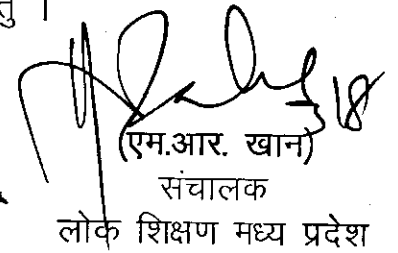 तु ।
(एम.आर. खान)
संचालक
लोक शिक्षण मध्य प्रदेश